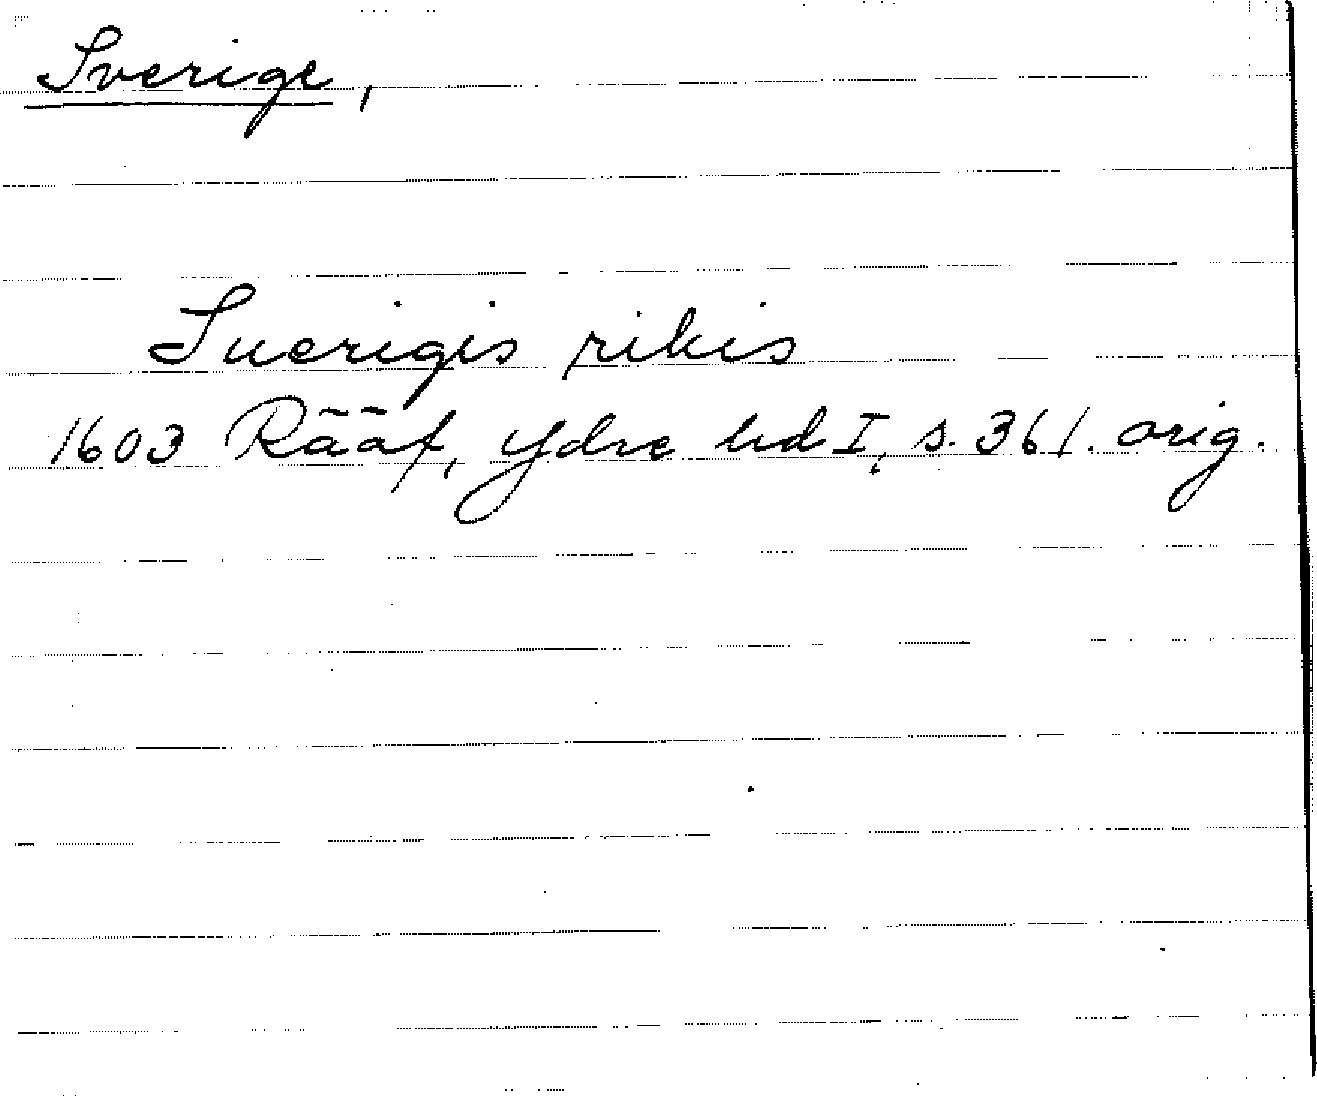 Sverige,
Suerigis rikis
1603 Rääf, Ydre hd I, s. 361. orig.